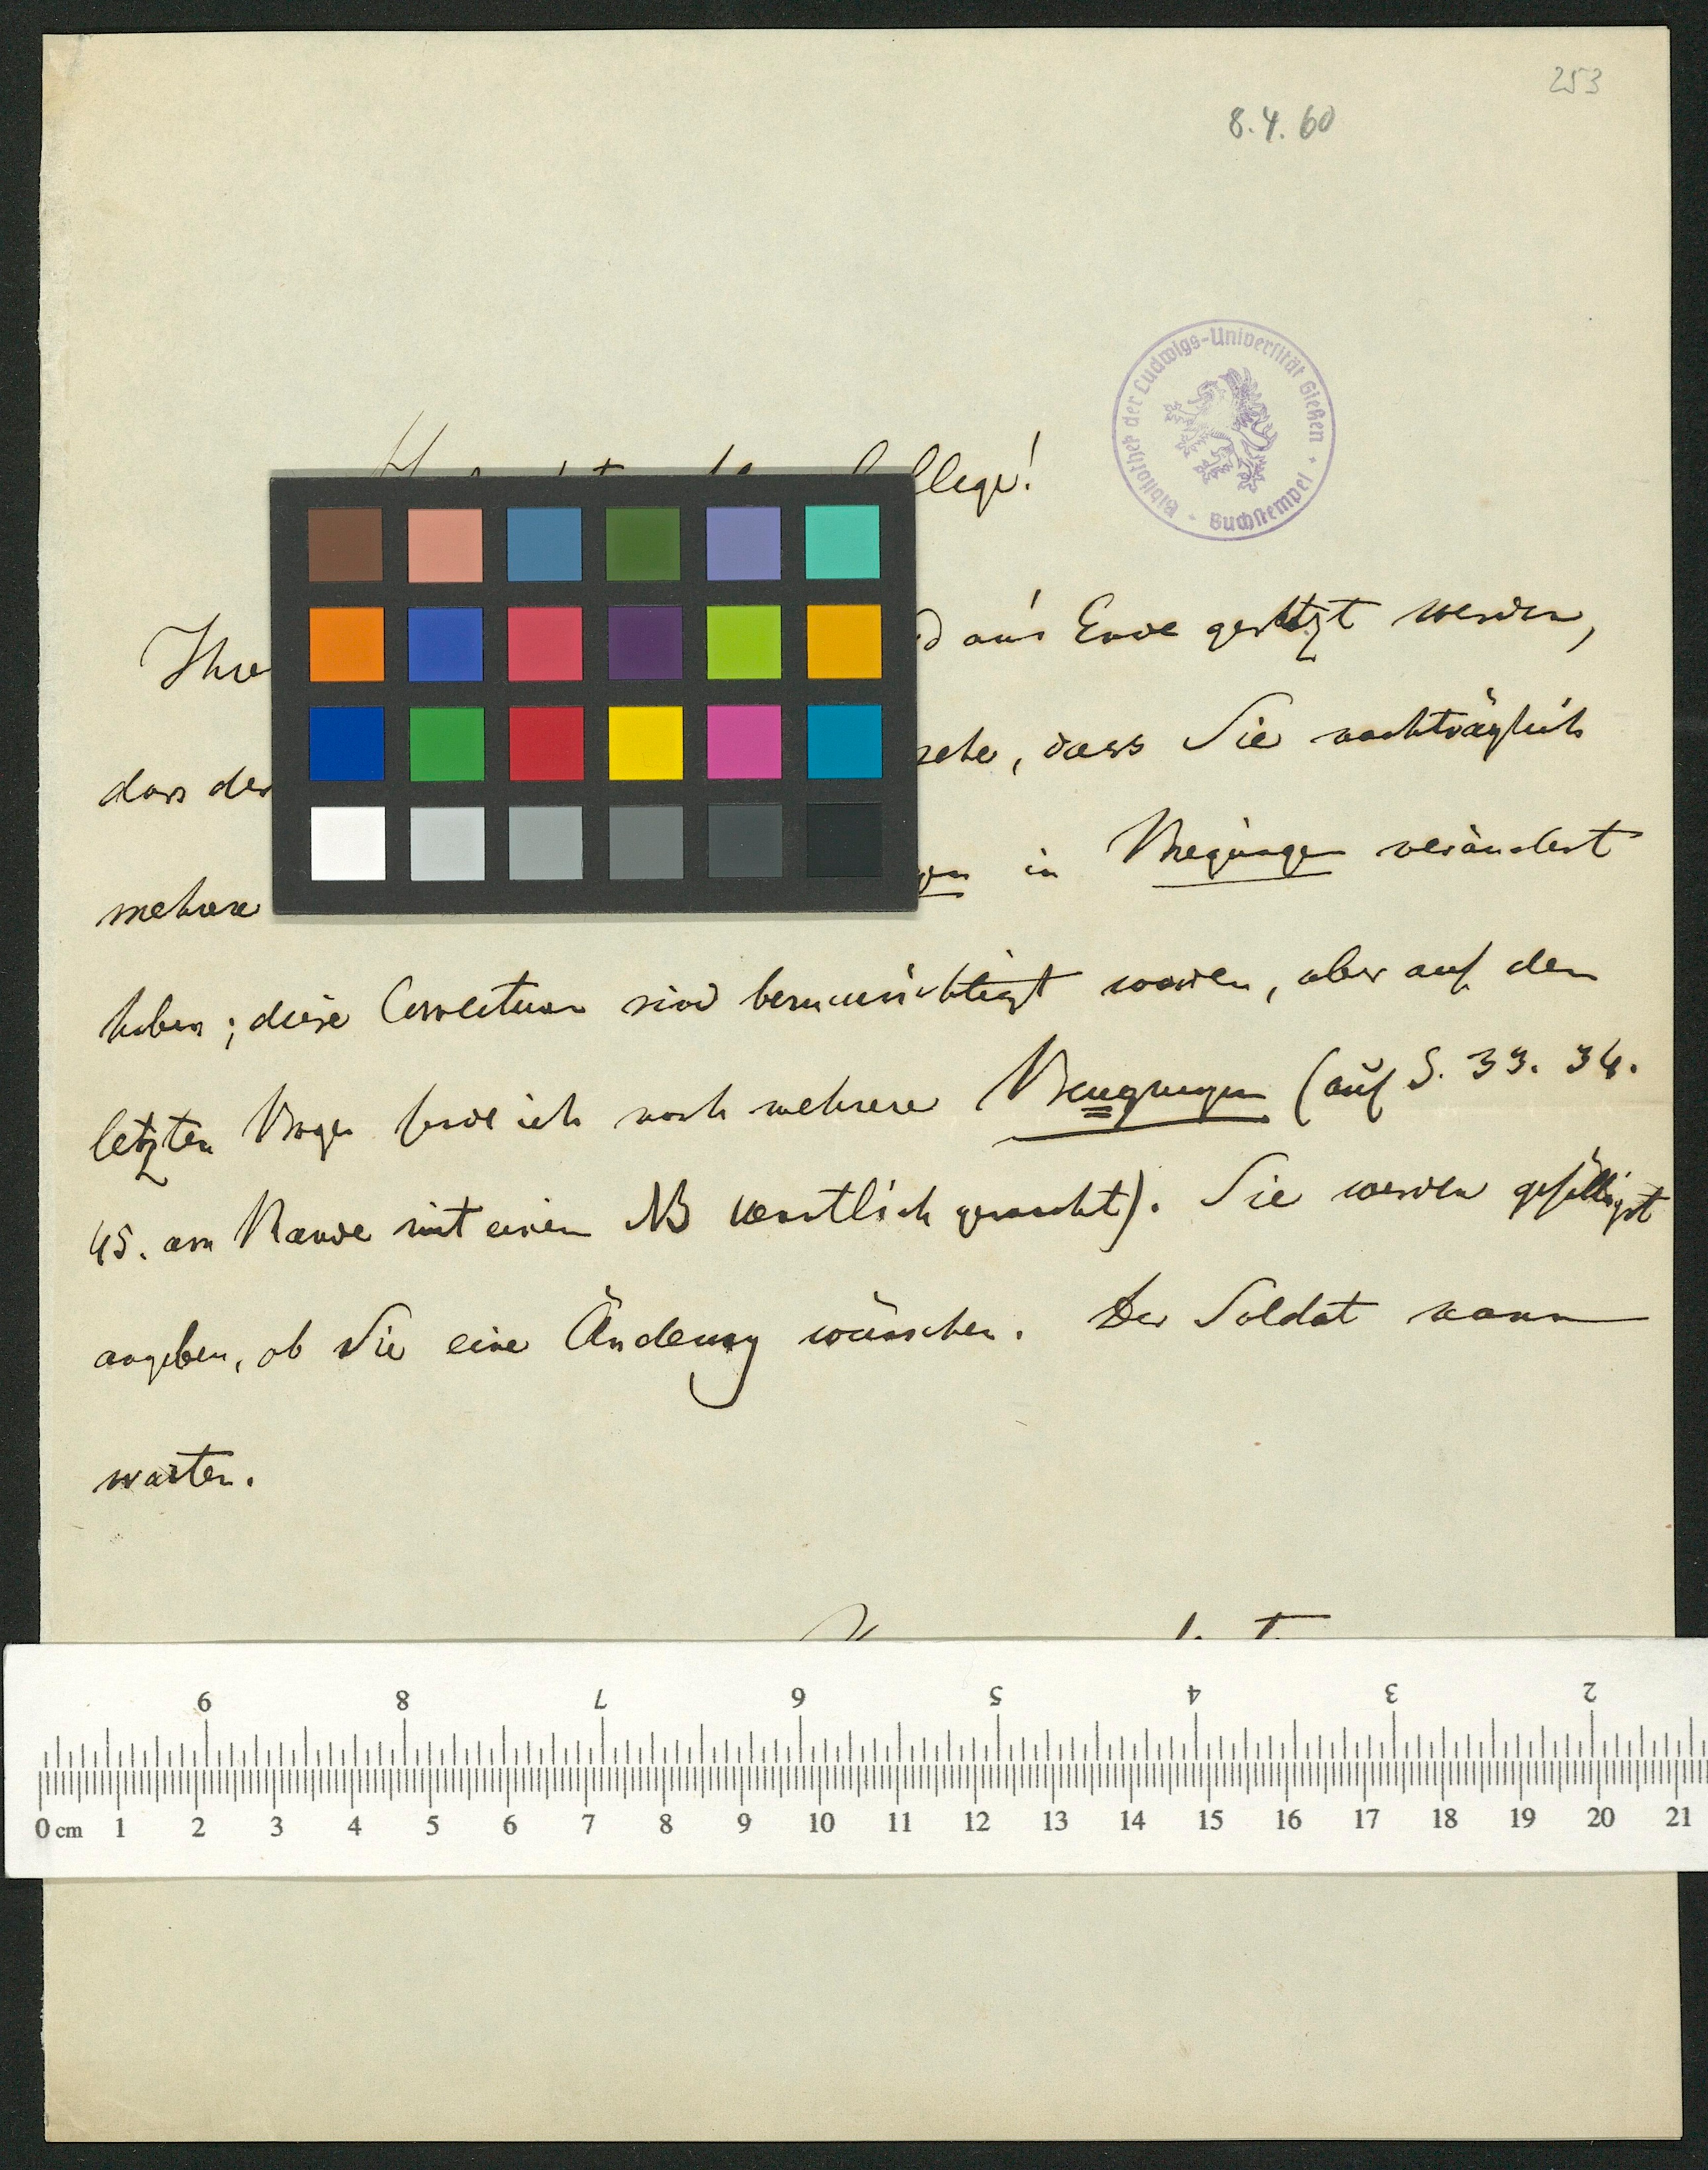 253
8.4.60
Bibliothek der Ludwigs-Universität Gießen
Buchstempel
llege!
Ihre
an's Ende gesetzt werden,
dass der
sehe, dass Sie nachträglich
mehrere
gen in Biegungen verändert
haben; diese Correcturen sind berücksichtigt worden, aber auf dem
letzten Bogen finde ich noch mehrere Beugungen (auf S. 33. 34.
45. am Rande mit einem NB kenntlich gemacht). Sie werden gefälligst
angeben, ob Sie eine Änderung wünschen. Der Soldat kann
warten.
9 8 7 6 5 4 3 2
0 cm 1 2 3 4 5 6 7 8 9 10 11 12 13 14 15 16 17 18 19 20 21